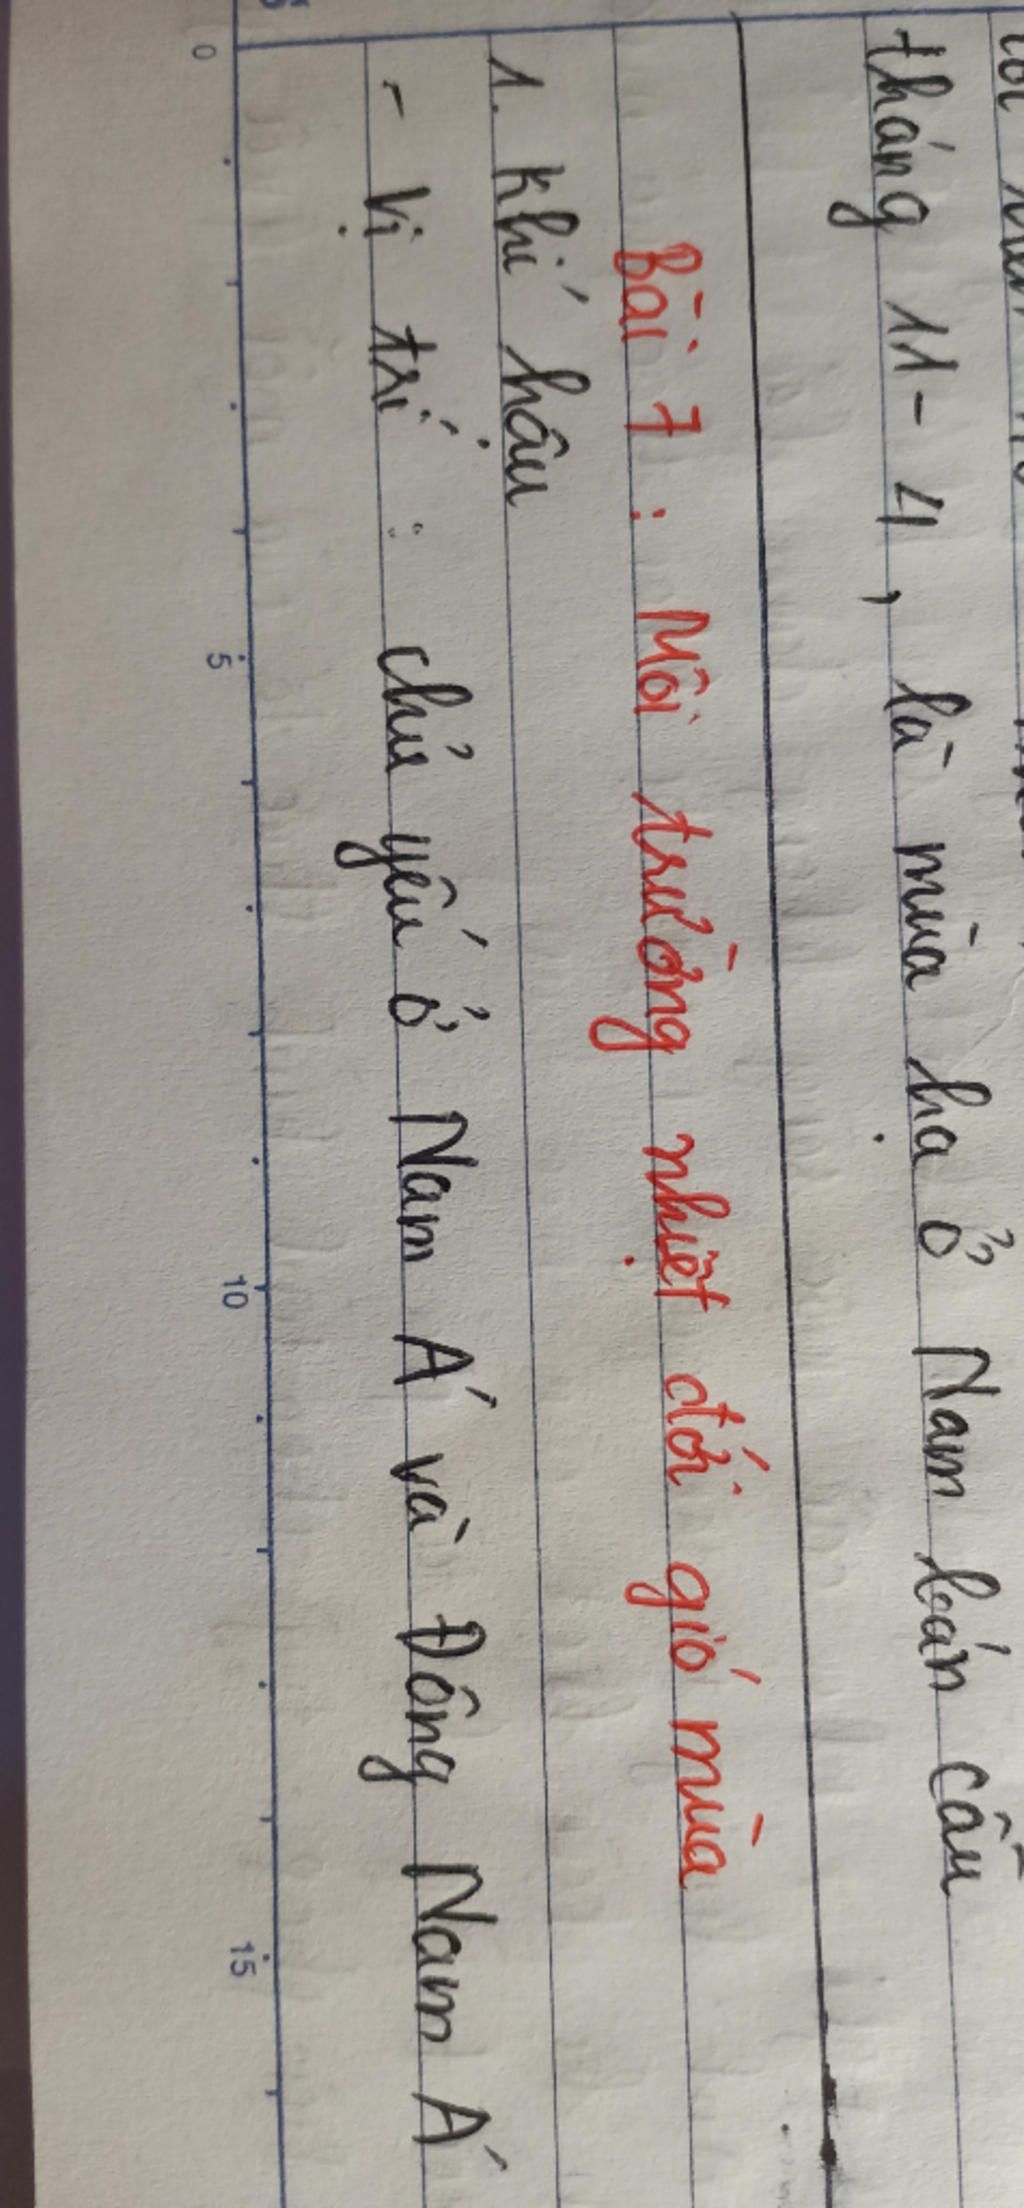 tháng 11-4, là mùa hạ ở Nam bán cầu
Bài 7: Môi trường nhiệt đới gió mùa
1. Khí hậu
- Vị trí: chủ yếu ở Nam Á và Đông Nam Á
0 5 10 15